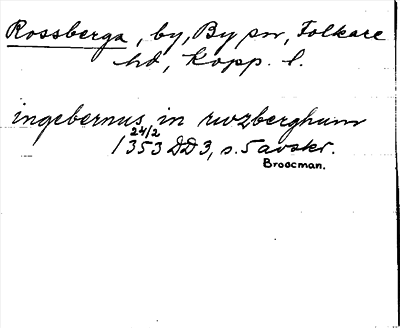 Rossberga, by, By sn, Folkare
hd, Kopp. l.
ingebernus in rwzberghum
24/2
1353 DD3, s. 5 avskr.
Broocman.